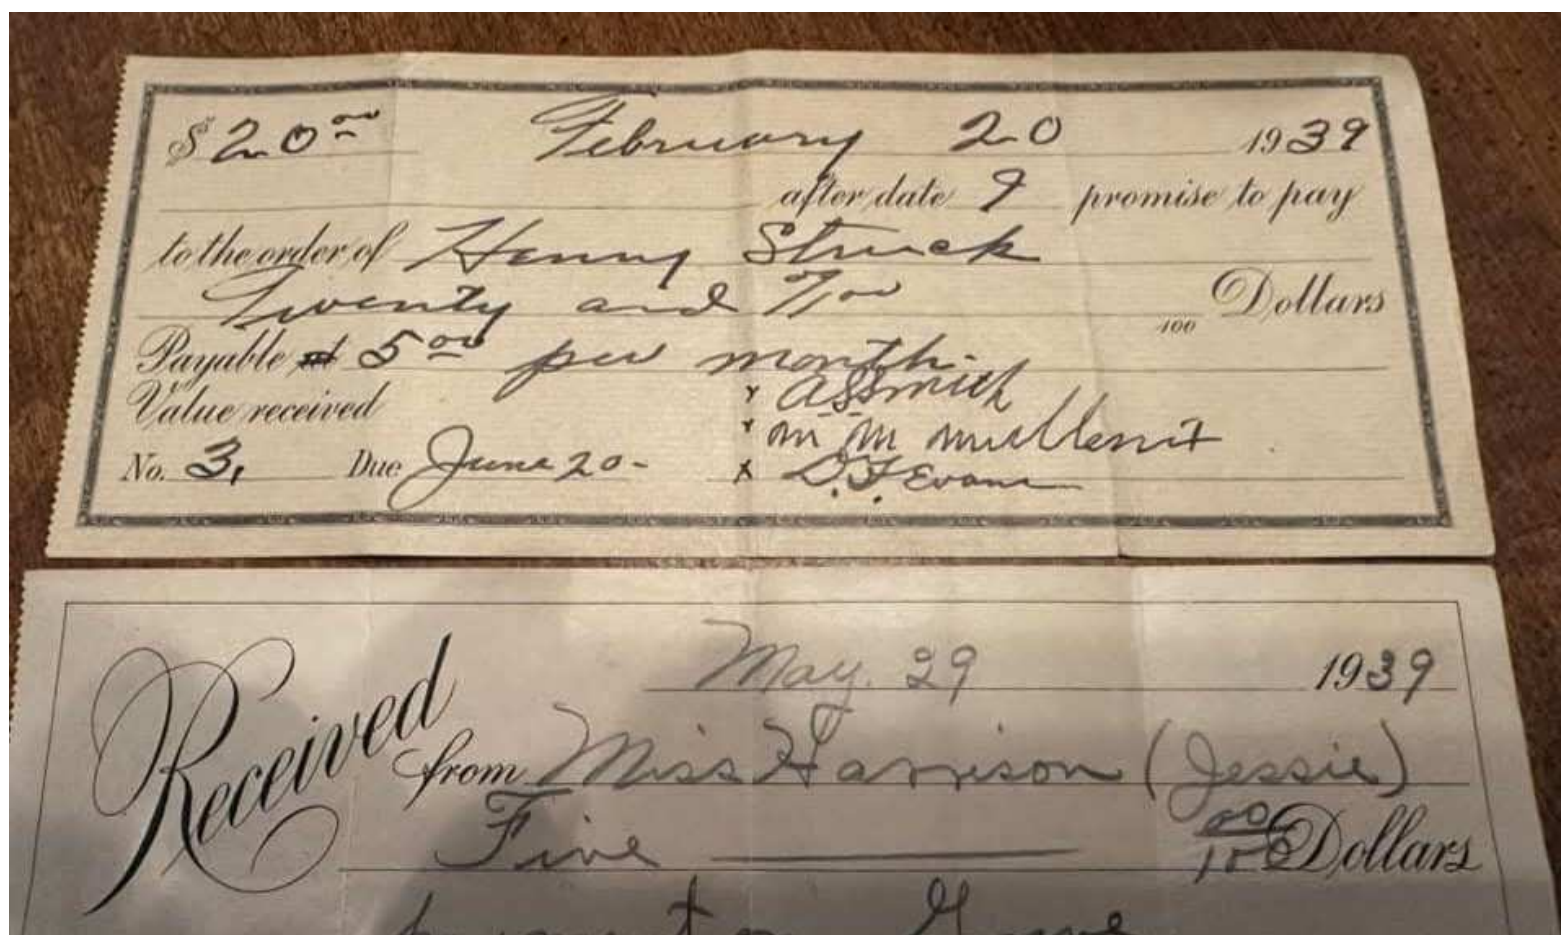 $ 20 00 February 20 1939
after date I promise to pay
to the order of Henry Struck
Twenty and no/100 Dollars
100
Payable at 5 00 per month
Value received x A S Smith
x m m
No. 3, Due June 20- x D. F. Evans
May. 29 1939
Received from Miss Harrison (Jessie)
Five 00/100 Dollars
payment on